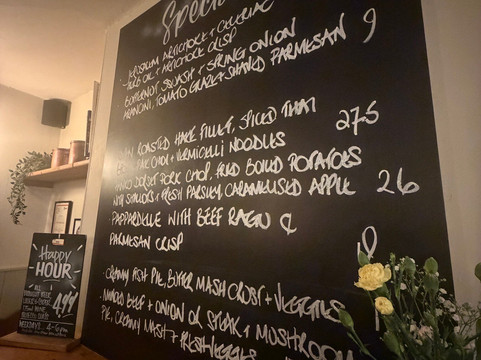 Specials
JERUSALEM ARTICHOKE + CELERIAC
HERB OIL + ARTICHOKE CRISP
BUTTERNUT SQUASH + SPRING ONION
ARANCINI, TOMATO GLAZE + SHAVED PARMESAN 9
ROASTED HAKE FILLET, SPICED THAI
PAK CHOI + VERMICELLI NOODLES 27.5
DORSET PORK CHOP, FRIED BOILED POTATOES
WITH SHALLOTS + FRESH PARSLEY, CARAMELISED APPLE 26
PAPPARDELLE WITH BEEF RAGU &
PARMESAN CRISP
- CREAMY FISH PIE, BUTTER MASH CRUST + VEGGIES
- MINCED BEEF + ONION OR STEAK + MUSHROOM
PIE, CREAMY MASH + FRESH VEGGIES
Happy
HOUR
WEEKDAYS 4-6pm